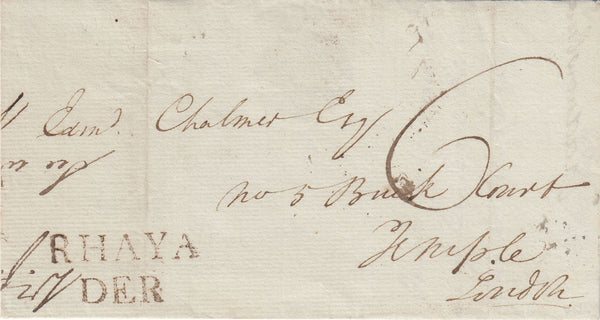 Edmd. Chalmer Esqr
No 5 Brick Court
6
Temple
London
RHAYA
DER